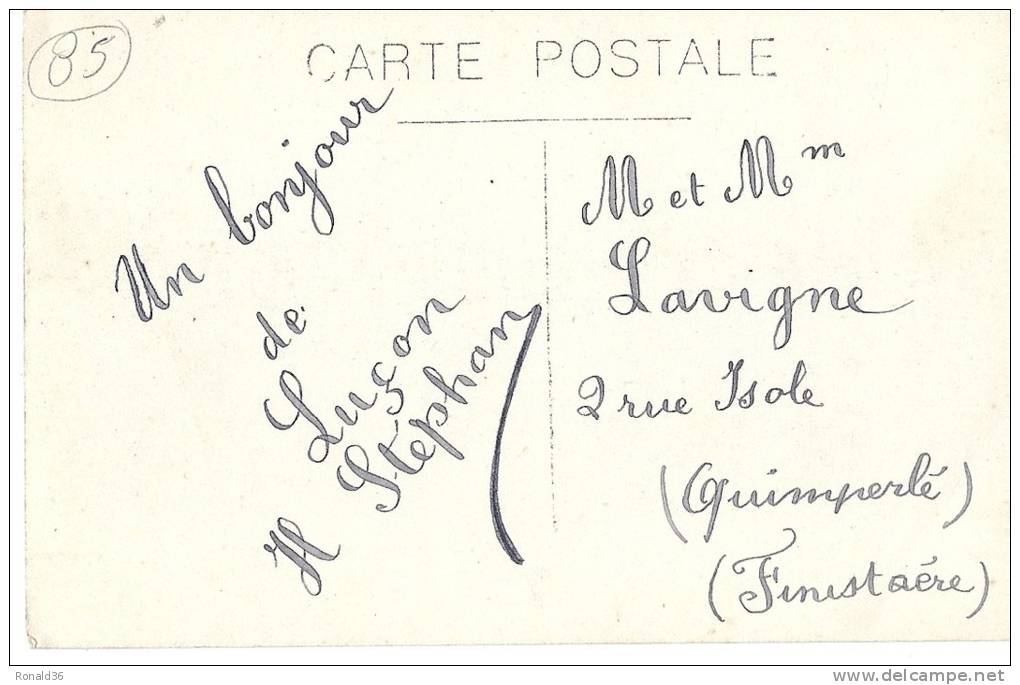 85
CARTE POSTALE
Un bonjour
de
Luçon
H Stéphan
M et Mm
Lavigne
2 rue Isole
(Quimperlé)
(Finistaére)
Ronald36
delcampe.net